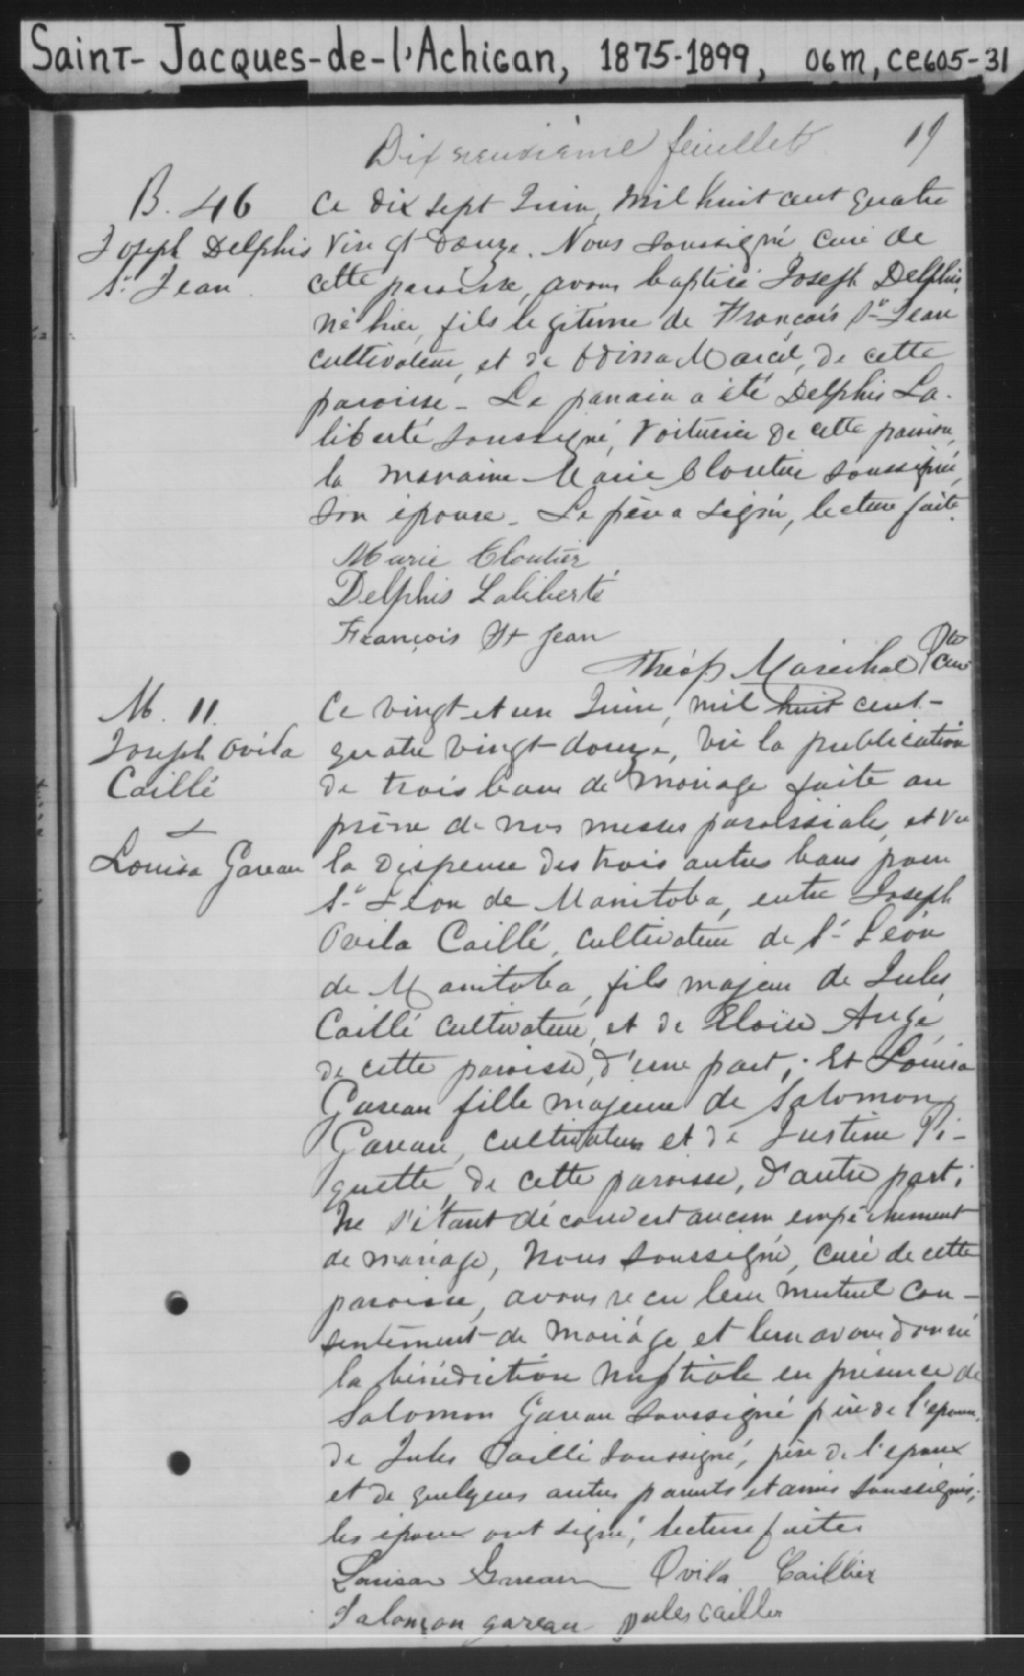 Saint-Jacques-de-l'Achigan, 1875-1899, 06m, ce605-31
Dix neuvième feuillet 19
B. 46
Joseph Delphis
St Jean
Ce dix sept Juin, mil huit cent quatre
vingt douze. Nous soussigné curé de
cette paroisse, avons baptisé Joseph Delphis,
né hier, fils légitime de François St Jean
cultivateur, et de Odissa Marcil, de cette
paroisse - Le parrain a été Delphis La-
liberté soussigné, voiturier de cette paroisse,
la marraine Marie Cloutier soussignée,
son épouse. Le père a signé, lecture faite.
Marie Cloutier
Delphis Laliberté
François St Jean
Théop Maréchal Ptre Curé
M. 11.
Joseph Ovila
Caillé
&
Louisa Gareau
Ce vingt et un Juin, mil huit cent-
quatre vingt-douze, vu la publication
de trois bans de mariage faite au
prône de nos messes paroissiales, et vu
la dispense des trois autres bans pour
St Léon de Manitoba, entre Joseph
Ovila Caillé, cultivateur de St Léon
de Manitoba, fils majeur de Jules
Caillé cultivateur, et de Eloïse Augé,
de cette paroisse, d'une part; Et Louisa
Gareau fille majeure de Salomon
Gareau, cultivateur et de Justine Pi-
quette, de cette paroisse, d'autre part;
Ne s'étant découvert aucun empêchement
de mariage, nous soussigné, curé de cette
paroisse, avons reçu leur mutuel con-
sentement de mariage et leur avons donné
la bénédiction nuptiale en présence de
Salomon Gareau soussigné père de l'épouse,
de Jules Caillé soussigné, père de l'époux
et de quelques autres parents et amis soussignés;
les époux ont signé, lecture faite.
Louisa Gareau Ovila Caillier
Salomon gareau jules cailler